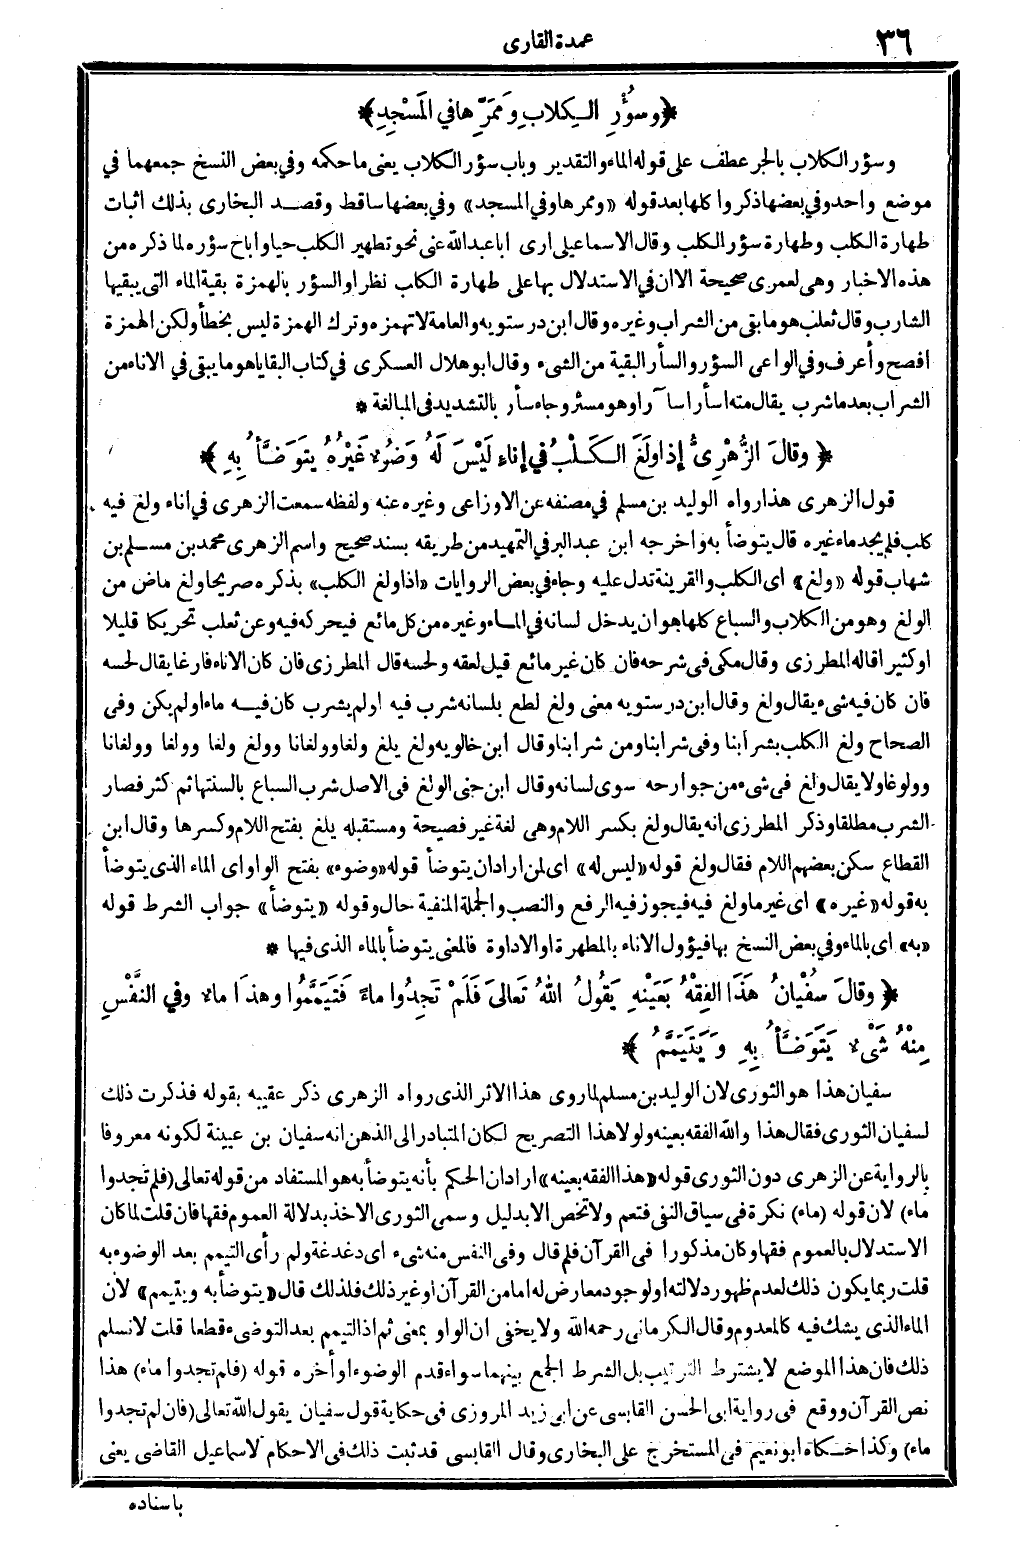 ٣٦
عمدة القارى
﴿ وسُؤْرِ الكِلابِ ومَمَرِّها في المَسْجِدِ ﴾
وسؤر الكلاب بالجر عطف على قوله الماء والتقدير وباب سؤر الكلاب يعنى ما حكمه وفي بعض النسخ جمعهما في
موضع واحد وفي بعضها ذكروا كلها بعد قوله «وممرها وفي المسجد» وفي بعضها ساقط وقصد البخارى بذلك اثبات
طهارة الكلب وطهارة سؤر الكلب وقال الاسماعيلى ارى ابا عبدالله عنى نحو تطهير الكلب حيا واباح سؤره لما ذكره من
هذه الاخبار وهى لعمرى صحيحة الا ان في الاستدلال بها على طهارة الكلب نظر او السؤر بالهمزة بقية الماء التى يبقيها
الشارب وقال ثعلب هو ما بقى من الشراب وغيره وقال ابن درستويه والعامة لا تهمزه وترك الهمزة ليس بخطأ ولكن الهمزة
افصح وأعرف وفي الواعى السؤر والسأر البقية من الشىء وقال ابو هلال العسكرى في كتاب البقايا هو ما يبقى في الاناء من
الشراب بعد ما شرب يقال منه اسأر اسآرا وهو مسئر وجاء سأر بالتشديد فى المبالغة *
﴿ وقالَ الزُّهْرِىُّ إذا ولَغَ الكَلْبُ في إناءٍ لَيْسَ لَهُ وَضُوءٌ غَيْرُهُ يتوَضَّأُ بِهِ ﴾
قول الزهرى هذا رواه الوليد بن مسلم في مصنفه عن الاوزاعى وغيره عنه ولفظه سمعت الزهرى في اناء ولغ فيه
كلب فلم يجد ماء غيره قال يتوضأ به واخرجه ابن عبد البر في التمهيد من طريقه بسند صحيح واسم الزهرى محمد بن مسلم بن
شهاب قوله «ولغ» اى الكلب والقرينة تدل عليه وجاء في بعض الروايات «اذا ولغ الكلب» بذكره صريحا ولغ ماض من
الولغ وهو من الكلاب والسباع كلها هو ان يدخل لسانه في الماء وغيره من كل مائع فيحركه فيه وعن ثعلب تحريكا قليلا
او كثيرا قاله المطرزى وقال مكى فى شرحه فان كان غير مائع قيل لعقه ولحسه قال المطرزى فان كان الاناء فارغا يقال لحسه
فان كان فيه شىء يقال ولغ وقال ابن درستويه معنى ولغ لطع بلسانه شرب فيه او لم يشرب كان فيه ماء او لم يكن وفى
الصحاح ولغ الكلب بشرابنا وفى شرابنا ومن شرابنا وقال ابن خالويه ولغ يلغ ولغا وولغانا وولغ ولغا وولغا وولغانا
وولوغا ولا يقال ولغ فى شىء من جوارحه سوى لسانه وقال ابن جنى الولغ فى الاصل شرب السباع بالسنتها ثم كثر فصار
الشرب مطلقا وذكر المطرزى انه يقال ولغ بكسر اللام وهى لغة غير فصيحة ومستقبله يلغ بفتح اللام وكسرها وقال ابن
القطاع سكن بعضهم اللام فقال ولغ قوله «ليس له» اى لمن اراد ان يتوضأ قوله «وضوء» بفتح الواو اى الماء الذى يتوضأ
به قوله «غيره» اى غير ما ولغ فيه فيجوز فيه الرفع والنصب والجملة المنفية حال وقوله «يتوضأ» جواب الشرط قوله
«به» اى بالماء وفي بعض النسخ بها فيؤول الاناء بالمطهرة او الاداوة فالمعنى يتوضأ بالماء الذى فيها *
﴿ وقالَ سُفْيانُ هَذَا الفِقْهُ بِعَيْنِهِ يَقُولُ اللهُ تَعالَى فَلَمْ تَجِدُوا ماءً فَتَيَمَّمُوا وهذَا ماءٌ وفي النَّفْسِ
مِنْهُ شَىْءٌ يَتَوَضَّأُ بِهِ وَيَتَيَمَّمُ ﴾
سفيان هذا هو الثورى لان الوليد بن مسلم لما روى هذا الاثر الذى رواه الزهرى ذكر عقيبه بقوله فذكرت ذلك
لسفيان الثورى فقال هذا والله الفقه بعينه ولولا هذا التصريح لكان المتبادر الى الذهن انه سفيان بن عيينة لكونه معروفا
بالرواية عن الزهرى دون الثورى قوله «هذا الفقه بعينه» اراد ان الحكم بأنه يتوضأ به هو المستفاد من قوله تعالى (فلم تجدوا
ماء) لان قوله (ماء) نكرة فى سياق النفى فتعم ولا تخص الا بدليل وسمى الثورى الاخذ بدلالة العموم فقها فان قلت لما كان
الاستدلال بالعموم فقها وكان مذكورا فى القرآن فلم قال وفى النفس منه شىء اى دغدغة ولم رأى التيمم بعد الوضوء به
قلت ربما يكون ذلك لعدم ظهور دلالته او لوجود معارض له اما من القرآن او غير ذلك فلذلك قال «يتوضأ به ويتيمم» لان
الماء الذى يشك فيه كالمعدوم وقال الكرمانى رحمه الله ولا يخفى ان الواو بمعنى ثم اذ التيمم بعد التوضىء قطعا قلت لا نسلم
ذلك فان هذا الموضع لا يشترط الترتيب بل الشرط الجمع بينهما سواء قدم الوضوء او أخره قوله (فلم تجدوا ماء) هذا
نص القرآن ووقع فى رواية ابى الحسن القابسى عن ابى زيد المروزى فى حكاية قول سفيان يقول الله تعالى (فان لم تجدوا
ماء) وكذا حكاه ابو نعيم فى المستخرج على البخارى وقال القابسى قد ثبت ذلك فى الاحكام لاسماعيل القاضى يعنى
باسناده